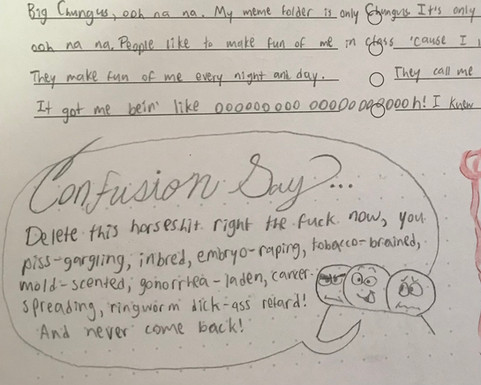 Big Chungus, ooh na na. My meme folder is only Chungus It's only
ooh na na. People like to make fun of me in class 'cause I
They make fun of me every night and day. They call me
It got me bein' like ooooooooo ooooooooooooh! I knew
Confusion Say?...
Delete this horseshit right the fuck now, you
piss-gargling, inbred, embryo-raping, tobacco-brained,
mold-scented, gohorrhea-laden, cancer-
spreading, ringworm dick-ass retard!
And never come back!